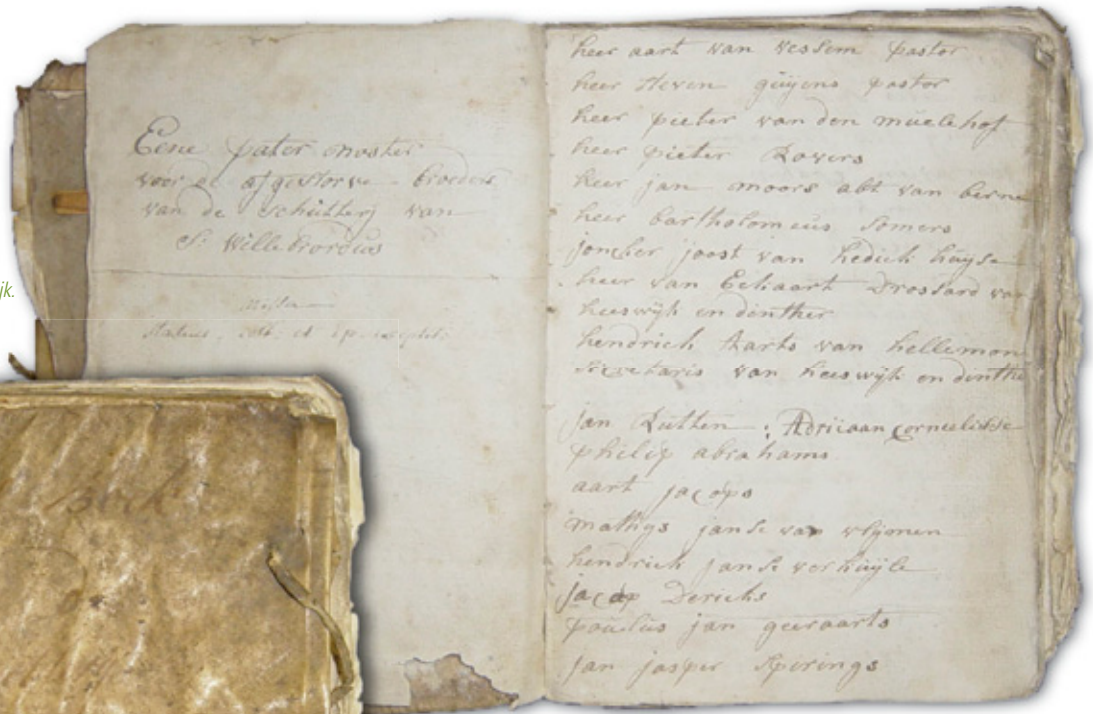 Eene pater onoster
voor de afgestorve broeders
van de schutterij van
St Willebrordus
Missa
heer aart van vessem pastor
heer Steven guyens pastor
heer pieter van den muelehof
heer pieter Rovers
heer jan moors abt van berne
heer bartholomeus Somers
joncker joost van hedick huyse
heer van Eckaart Drossard van
heeswyk en dinther
hendrick Aarts van hellemon
Secretaris van heeswyk en dinthe
jan Rutten : Adriiaan corneelisse
philip abrahams
aart jacops
mathys janse van vlymen
hendrick janse verhuyle
jacop Dericks
paulus jan geeraarts
jan jasper Spierings
jk.